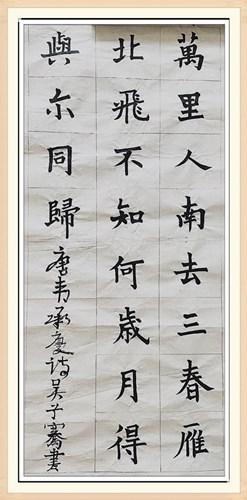 萬里人南去三春雁
北飛不知何歲月得
與尓同歸唐韦承慶詩吴子騫書